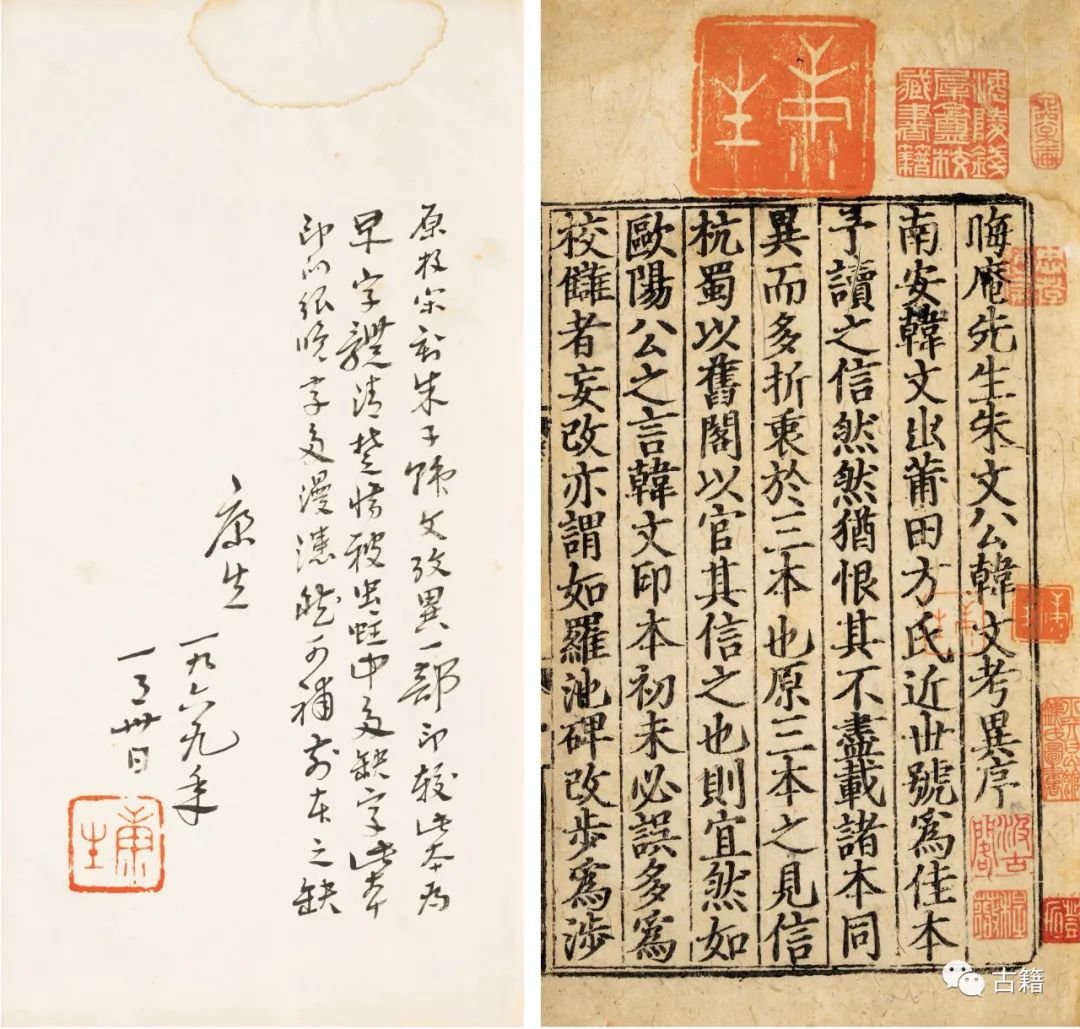 原宋刻朱子韩文攷異一部印較此本为
早字體清楚惜被虫蛀中多缺字此本
印很晚字多漫漶然可補前本之缺
康生
一九六九年
一月卅日
康生
康生
海陵錢犀盦校藏書籍
晦庵先生朱文公韓文考異序
南安韓文出莆田方氏近世號爲佳本
予讀之信然然猶恨其不盡載諸本同
異而多折衷於三本也原三本之見信
杭蜀以舊閣以官其信之也則宜然如
歐陽公之言韓文印本初未必誤多爲
校讎者妄改亦謂如羅池碑改步爲涉
康生
康生
汲古閣
古籍